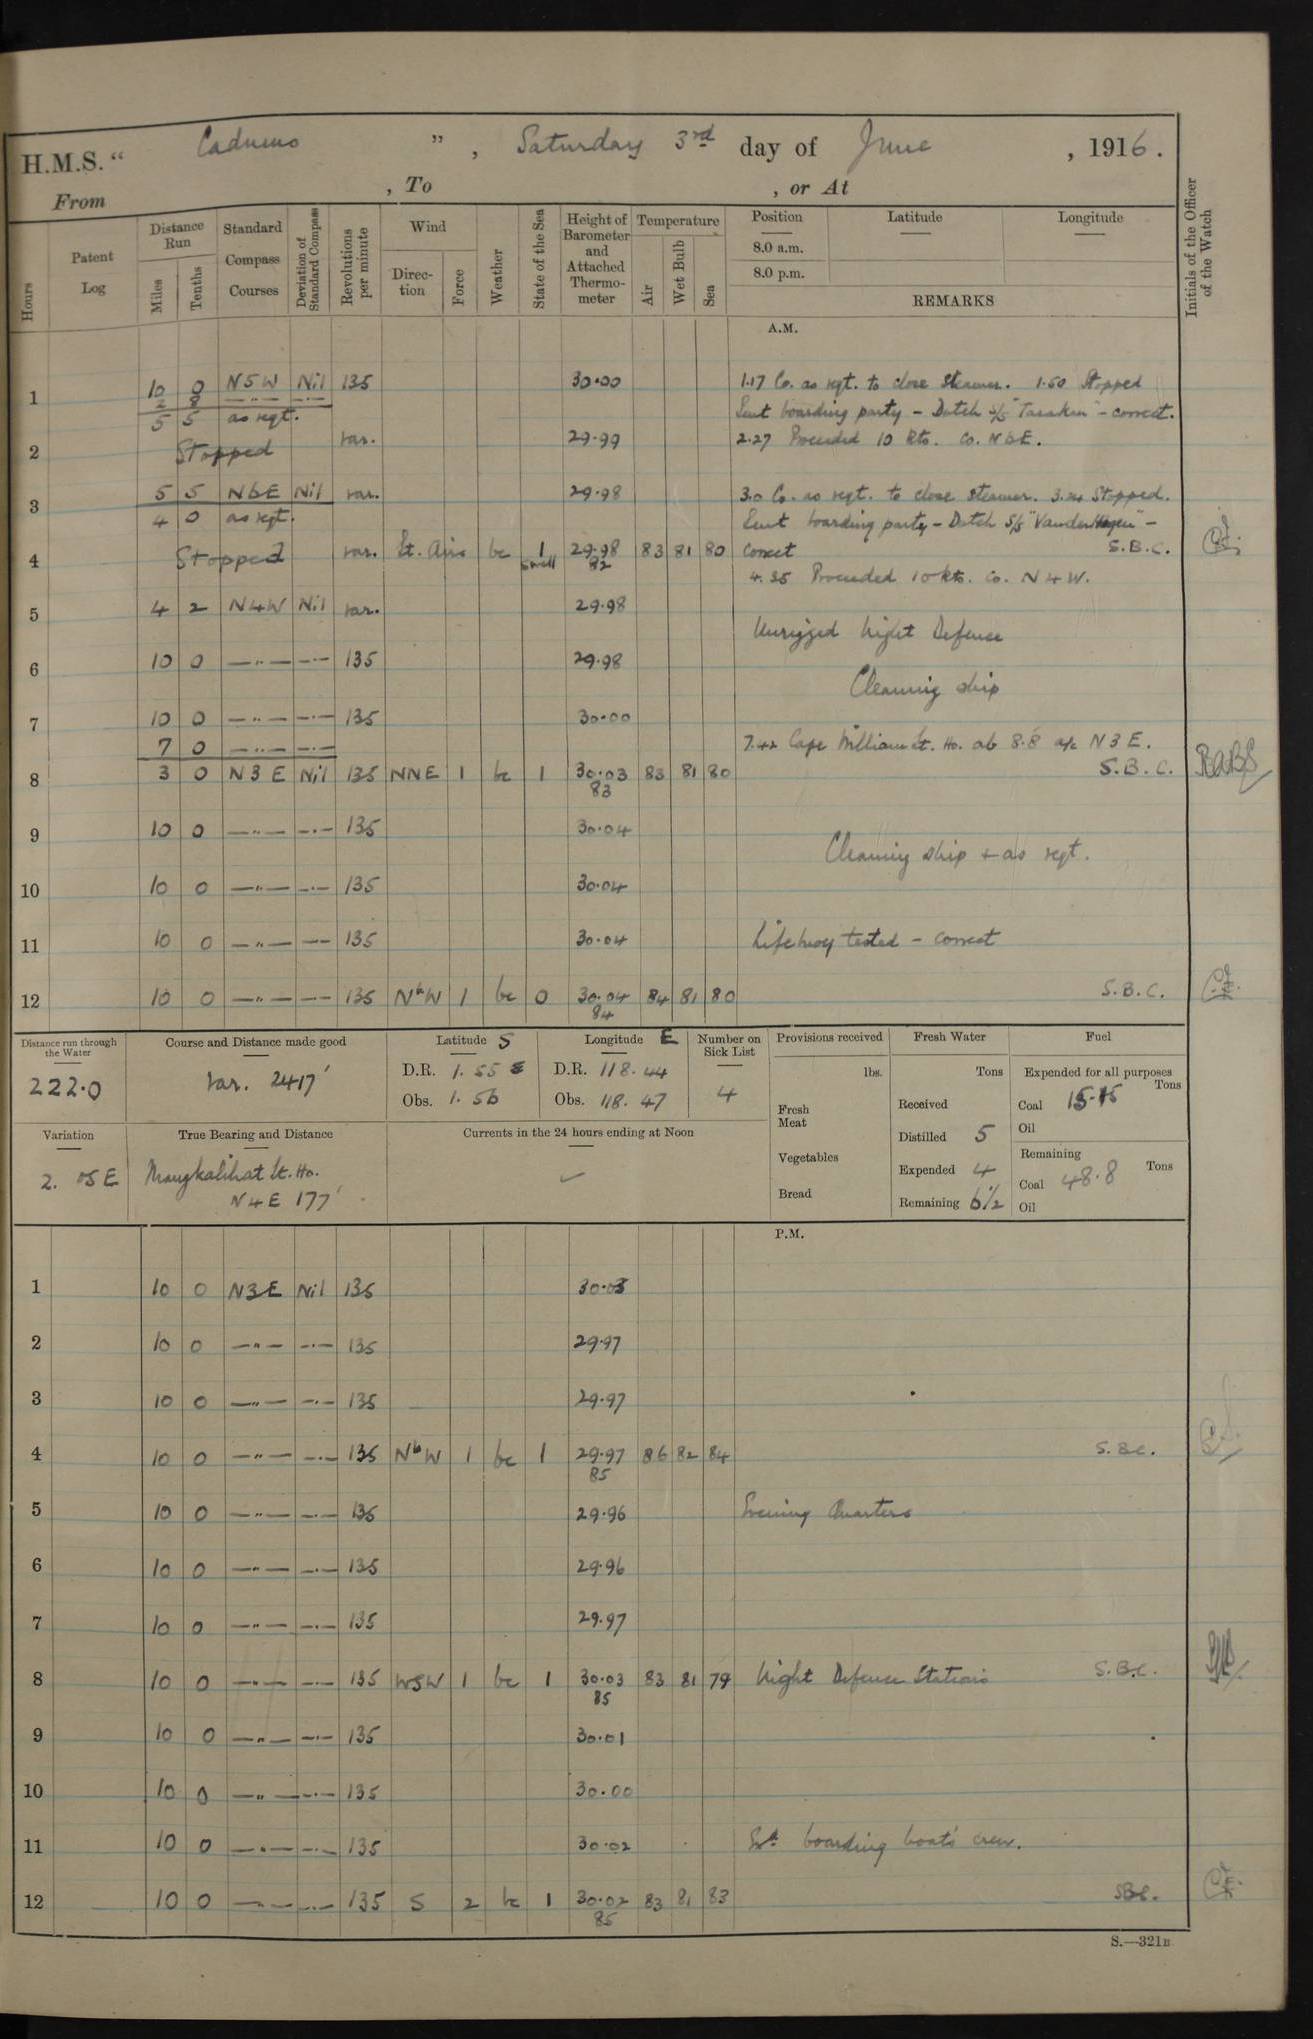 H.M.S. “ Cadmus ” , Saturday 3rd day of June , 1916.
From , To , or At
Hours
Patent Log
Distance Run
Miles
Tenths
Standard Compass Courses
Deviation of Standard Compass
Revolutions per minute
Wind
Direc-tion
Force
Weather
State of the Sea
Height of Barometer and Attached Thermo-meter
Temperature
Air
Wet Bulb
Sea
Position
Latitude
Longitude
8.0 a.m.
8.0 p.m.
REMARKS
Initials of the Officer of the Watch
A.M.
1 10 0 N5W Nil 135 30.00 1.17 Co. as reqt. to close steamer. 1.50 Stopped
2 8 —〃— —〃—
5 5 as reqt. Sent boarding party – Dutch S/S "Tarakan" – correct.
2 Stopped var. 29.99 2.27 Proceeded 10 kts. Co. NbE.
3 5 5 NbE Nil var. 29.98 3.0 Co. as reqt. to close steamer. 3.24 Stopped.
4 0 as reqt. Sent boarding party – Dutch S/S "Vander Hagen" –
4 Stopped var. Lt. Airs bc 1 Swell 29.98 82 83 81 80 Correct S.B.C.
4.35 Proceeded 10 kts. Co. N4W.
5 4 2 N4W Nil var. 29.98
Unrigged Night Defence
6 10 0 —〃— —〃— 135 29.98
Cleaning ship
7 10 0 —〃— —〃— 135 30.00
7 0 —〃— —〃— 7.42 Cape William Lt. Ho. ab 8.8 a/c N3E.
8 3 0 N3E Nil 135 NNE 1 bc 1 30.03 83 83 81 80 S.B.C.
9 10 0 —〃— —〃— 135 30.04
Cleaning ship + as reqt.
10 10 0 —〃— —〃— 135 30.04
11 10 0 —〃— —〃— 135 30.04 Lifebuoy tested – correct
12 10 0 —〃— —〃— 135 NbW 1 bc 0 30.04 84 84 81 80 S.B.C.
Distance run through the Water
222.0
Course and Distance made good
var. 247'
Latitude S
D.R. 1.55
Obs. 1.56
Longitude E
D.R. 118.44
Obs. 118.47
Number on Sick List
4
Variation
2. 05 E
True Bearing and Distance
Mangkalihat Lt. Ho.
N4E 177'
Currents in the 24 hours ending at Noon
Provisions received
lbs.
Fresh Meat
Vegetables
Bread
Fresh Water
Tons
Received
Distilled 5
Expended 4
Remaining 6½
Fuel
Expended for all purposes
Tons
Coal 15.15
Oil
Remaining
Tons
Coal 48.8
Oil
P.M.
1 10 0 N3E Nil 135 30.03
2 10 0 —〃— —〃— 135 29.97
3 10 0 —〃— —〃— 135 29.97
4 10 0 —〃— —〃— 135 NbW 1 bc 1 29.97 85 86 82 84 S.B.C.
5 10 0 —〃— —〃— 135 29.96 Evening Quarters
6 10 0 —〃— —〃— 135 29.96
7 10 0 —〃— —〃— 135 29.97
8 10 0 —〃— —〃— 135 WSW 1 bc 1 30.03 85 83 81 79 Night Defence Stations S.B.C.
9 10 0 —〃— —〃— 135 30.01
10 10 0 —〃— —〃— 135 30.00
11 10 0 —〃— —〃— 135 30.02 boarding boat's crew.
12 10 0 —〃— —〃— 135 S 2 bc 1 30.02 85 83 81 83 SBC.
S.—321B